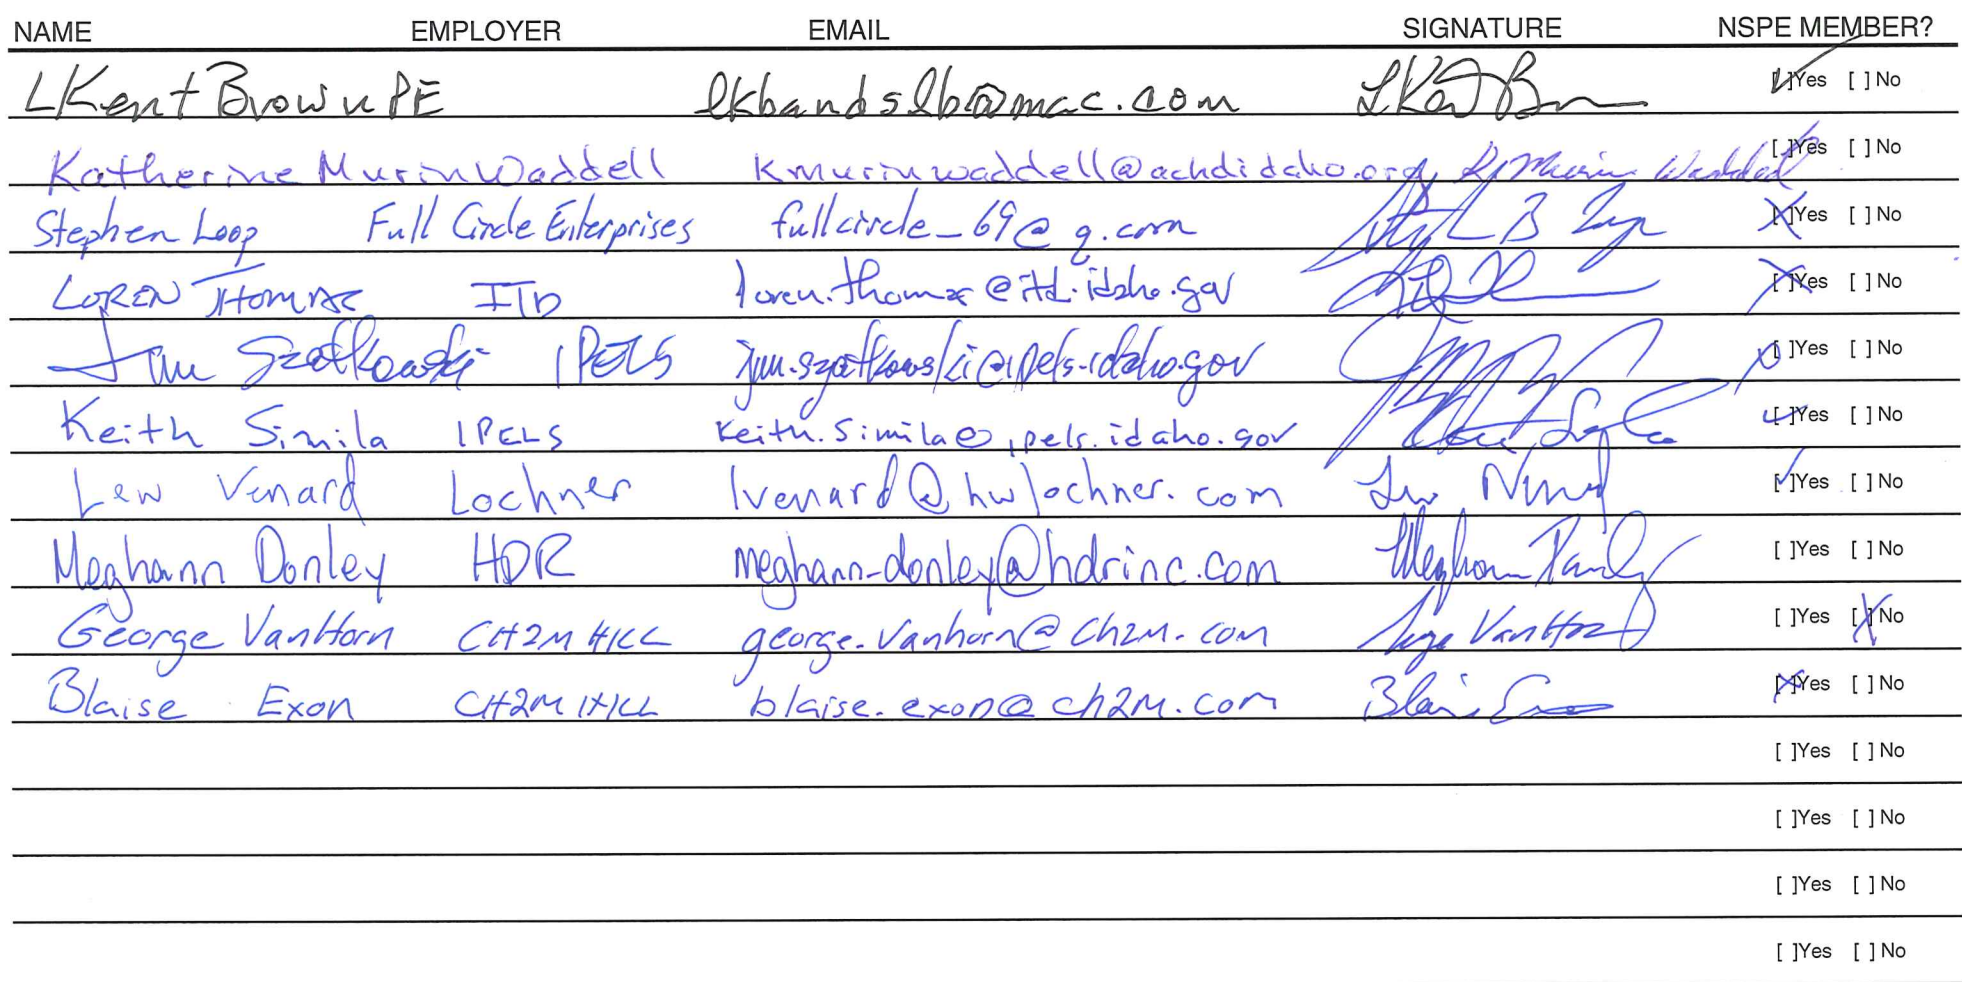 NAME EMPLOYER EMAIL SIGNATURE NSPE MEMBER?
LKent Brown PE lkbandslb@mac.com LKent B [✓]Yes [ ]No
Katherine Murin Waddell kmurinwaddell@achdidaho.org K Murin Waddell [✓]Yes [ ]No
Stephen Loop Full Circle Enterprises fullcircle_69@q.com [X]Yes [ ]No
LOREN THOMAS ITD loren.thomas@itd.idaho.gov [X]Yes [ ]No
Jim Szatkowski IPELS jim.szatkowski@ipels.idaho.gov [X]Yes [ ]No
Keith Simila IPELS keith.simila@ipels.idaho.gov [✓]Yes [ ]No
Lew Venard Lochner lvenard@hwlochner.com Lew [✓]Yes [ ]No
Meghann Donley HDR meghann-donley@hdrinc.com Meghann Donley [ ]Yes [ ]No
George VanHorn CH2M HILL george.vanhorn@ch2m.com VanHorn [ ]Yes [X]No
Blaise Exon CH2M HILL blaise.exon@ch2m.com Blaise [X]Yes [ ]No
[ ]Yes [ ]No
[ ]Yes [ ]No
[ ]Yes [ ]No
[ ]Yes [ ]No